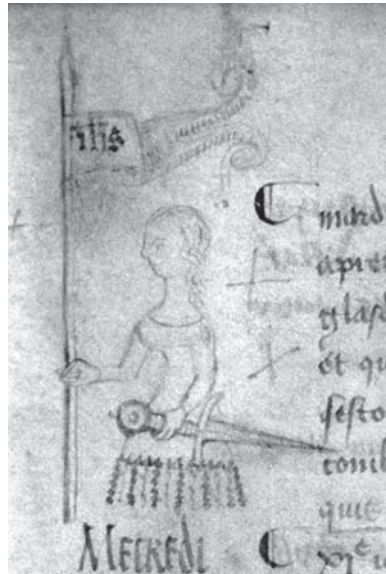 ihs
mard
apre
glasd
et qu
sesto
comb
quie
Mecredi